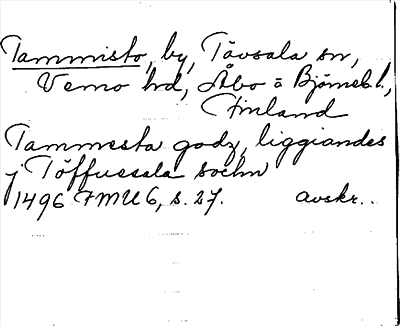 Tammisto, by, Tövsala sn,
Vemo hd, Åbo o Björneb. l.,
Finland
Tammesta godz, liggiandes
j Töffuesala sochn
1496 FMU 6, s. 27. avskr..